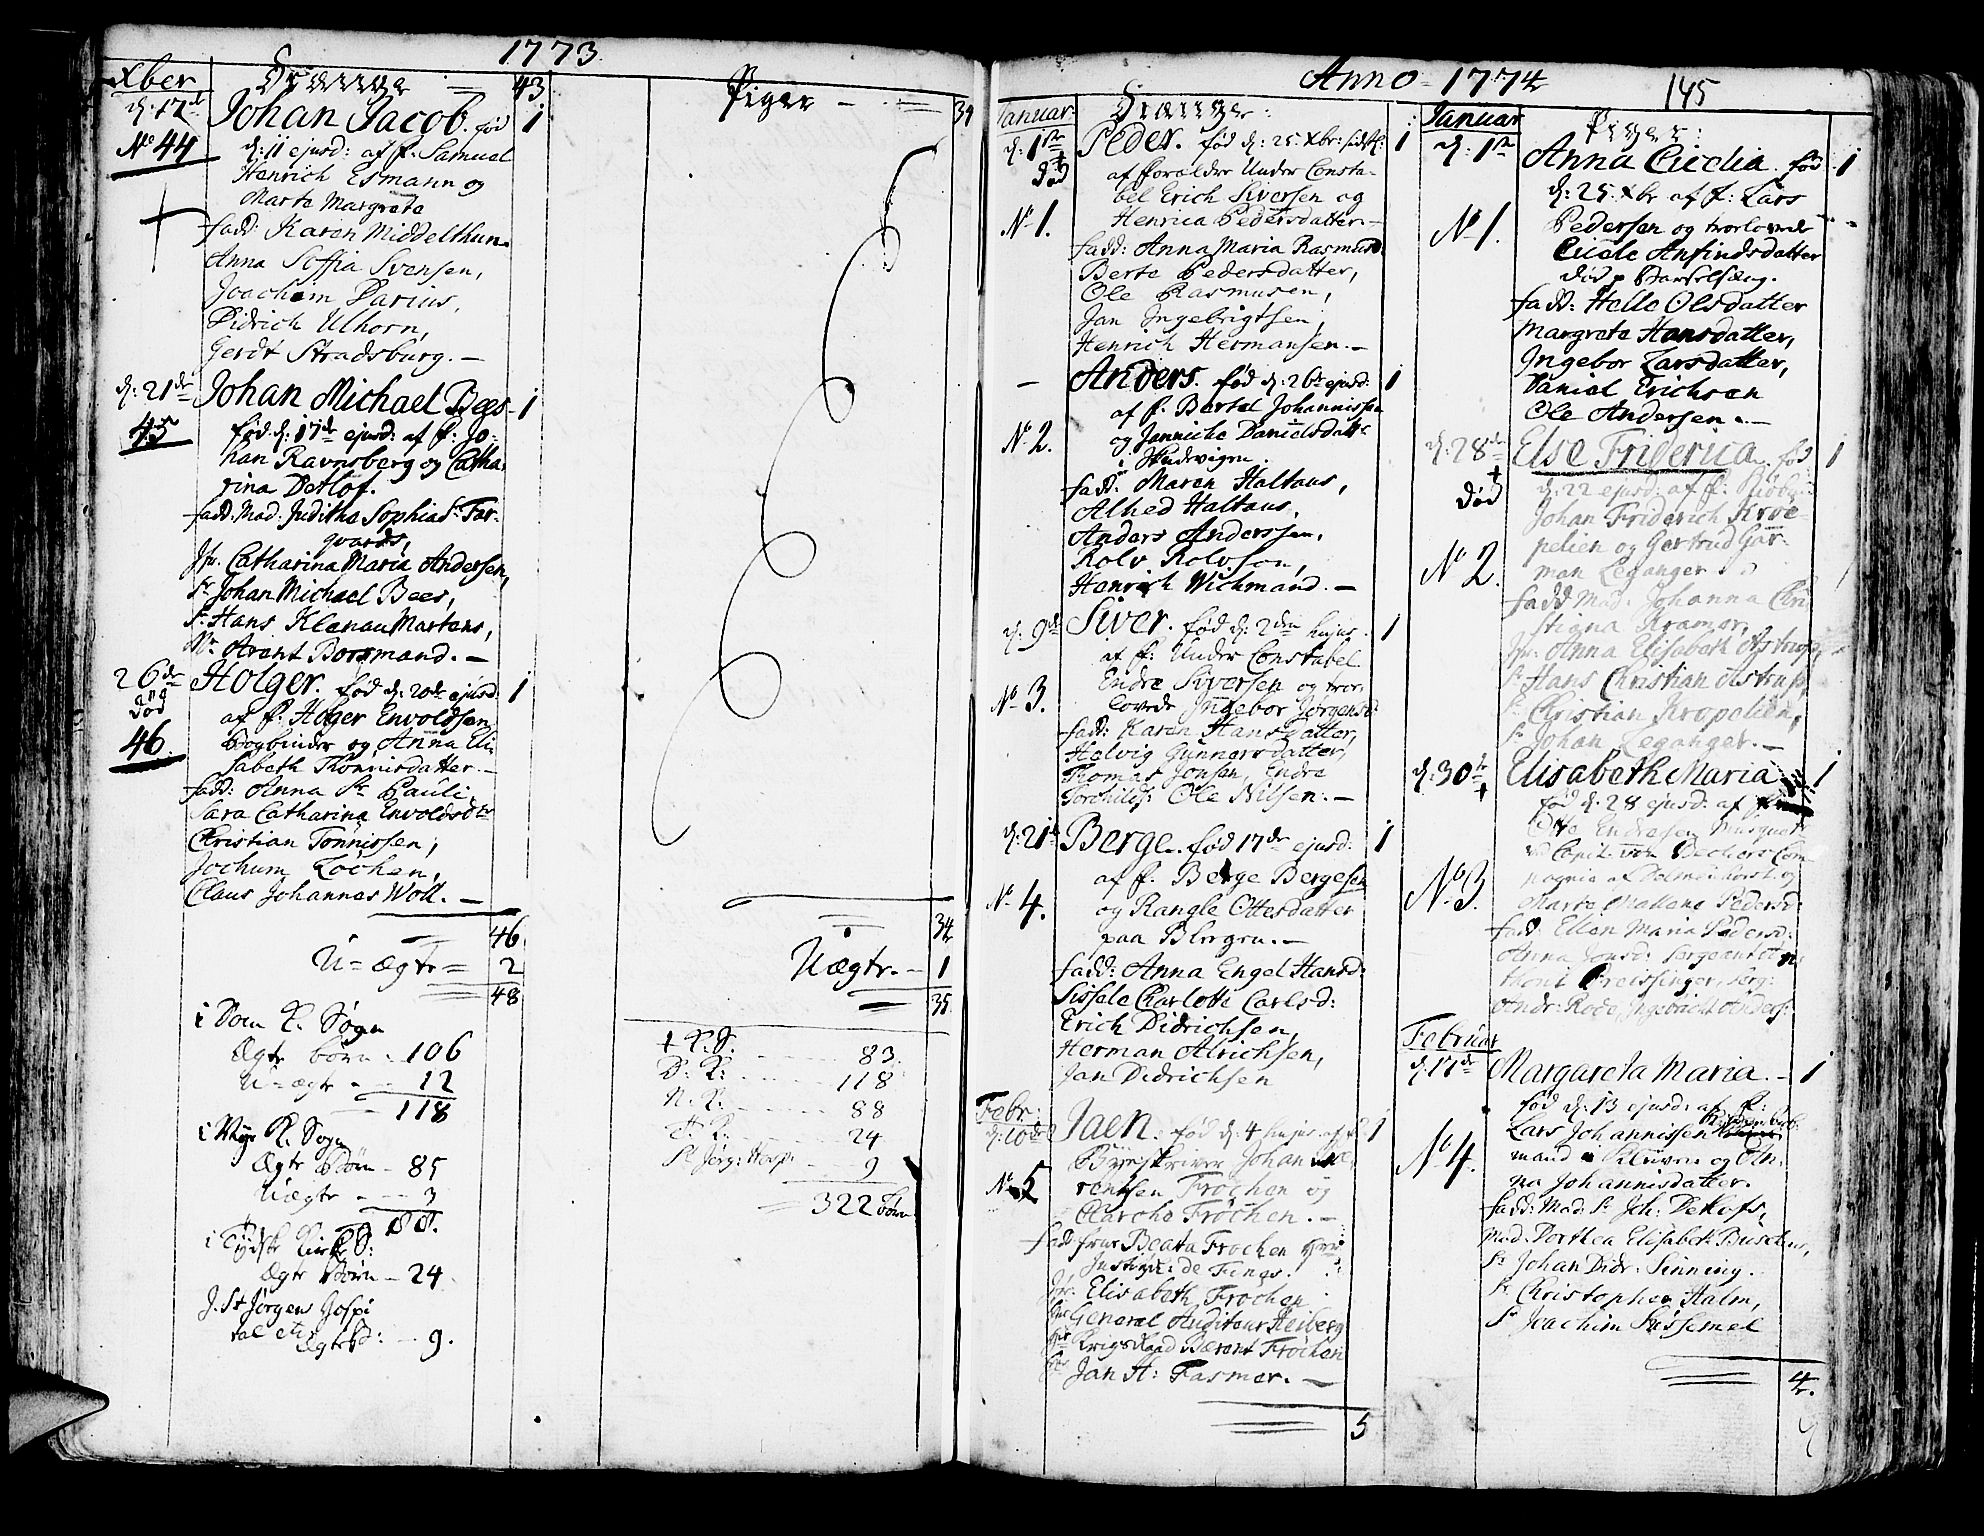 1773
Xber
Drænge = 43
d: 17de Johan Jacob. fød 1
No 44 d: 11 ejusd: af f. Samuel
Henrich Esmann og
Marte Margrete
fadd: Karen Middelthun
Anna Soffia Svensen,
Joachem Darius,
Didrich Ulhorn,
Gerdt Stradsburg. —
d: 21de Johan Michael Bees - 1
45 fød d: 17de ejusd: af f: Jo-
han Ravnsberg og Catha-
rina Detlof.
fadd: Mad: Juditha Sophia Sr Far-
gvards,
Jfr. Catharina Maria Andersen,
Sr Johan Michael Bees,
Sr Hans Klenau Martens,
Mr Arent Borsmand. —
26de Holger. fød d: 20de ejusd: 1
død
46. af f. Holger Envoldsen
Bogbinder og Anna Eli-
sabeth Tønnisdatter. —
fadd: Anna Sr Pauli
Sara Catharina Envoldsdtr
Christian Tønnissen,
Jochum Løchen,
Claus Johannes Woll. —
46.
U=ægte = 2
48
i Dom K. Sogn
Ægte børn - 106
U=ægte - 12
118
i Nye K. Sogn
Ægte Børn - 85
Uægte - 3
88.
i Tydske Kirke S:
Ægte Børn - 24.
J. St Jørgens Hospi
tal etc
Ægte B: - 9.
Piger = 34
34
Uægte. - 1
35
† K. S. 83.
D: K: 118
N. K. 88
T. K. 24
St Jørg: Hosp. 9
322 børn
Anno 1774
145
Januar
Drænge:
d: 1ste Peder. fød d: 25 Xbr: sidstl: 1
død af forældre Under Consta-
bel Erich Siversen og
No 1. Henrica Pedersdatter —
fadd: Anna Maria Rasmusd:
Berte Pedersdatter,
Ole Rasmusen,
Jan Ingebrigtsen,
Henrich Hermansen. —
— Anders. fød d: 26de ejusd: 1
af f. Bertel Johannissen
No 2. og Janniche Danielsdattr
i Skudevigen.
fadd: Maren Haltaus,
Alhed Haltaus,
Anders Anderssen,
Rolv Rolvson,
Henrich Wichmand. —
d: 9de Siver. fød d: 2den hujus. 1
af f: Under Constabel
Endre Siversen og tror
No 3. lovede Ingebor Jørgensd:
fadd: Karen Hansdatter,
Helvig Gunnersdatter,
Thomas Jonsen, Endre
Torchilds: Ole Nilsen: —
d: 21de Berge. fød 17de ejusd: 1
af f. Berge Bergesen
No 4. og Rangle Ottesdatter
paa Blegen. —
fadd: Anna Engel Hansd:
Sissele Charlotte Carlsd:
Erich Didrichsen,
Herman Alrichsen,
Jan Didrichsen
Febr:
d: 10de Jaen. fød d: 4 hujus af f. 1
Byeskriver Johan
No 5 rentsen Frochen og
Aarche Frochen. —
fadd: frue Beata Frochen
Justitz: de Fines.
Jfr: Elisabeth Frochen
Hr General Auditeur Heiberg
Hr Krigs Raad Bærent Frochen
Hr Jan H: Fasmer. —
5
Januar
Piger:
d: 1ste Anna Cicelia. fød 1
d: 25 Xbr af f: Lars
No 1. Pedersen og trorlovede
Cicele Ansindsdatter
død p Barselseng.
fadd: Helle Olsdatter
Margrete Hansdatter,
Ingebor Larsdatter,
Daniel Erichsen
Ole Andersen. —
d: 28de Else Friderica. fød 1
død d: 22 ejusd: af f: Kiøbm:
Johan Friderich Kroe-
No 2. pelien og Gertrud Gar-
man Leganger
fadd: Mad: Johanna Chri
stiana Kramer,
Jfr: Anna Elisabeth Astrup
Sr Hans Christian Astrup,
Sr Christian Kropelien,
Sr Johan Leganger. —
d: 30te Elisabeth Maria 1
fød d: 28 ejusd: af
Otte Endresen Musquet:
v Capit: von Bechers Com-
No 3. pagnie af Dolmenhorst og
Marte Malene Pedersd:
fadd: Ellen Maria Pedersd:
Anna Jonsd: Sergeant
thoni Preissinger, Serg:
Andr: Rode, Ingebricht Anders:
Februar
d: 17de Margareta Maria. - 1
fød d: 13 ejusd: af f:
Lars Johannissen
No 4. mand i Kluven og An-
na Johannisdatter.
fadd: Mad: Sr Joh: Detlofs,
Mad. Dorthea Elisabeth Busch
Sr Johan Didr: Sinning.
Sr Christopher Halm,
Sr Joachim Sussemel
4.